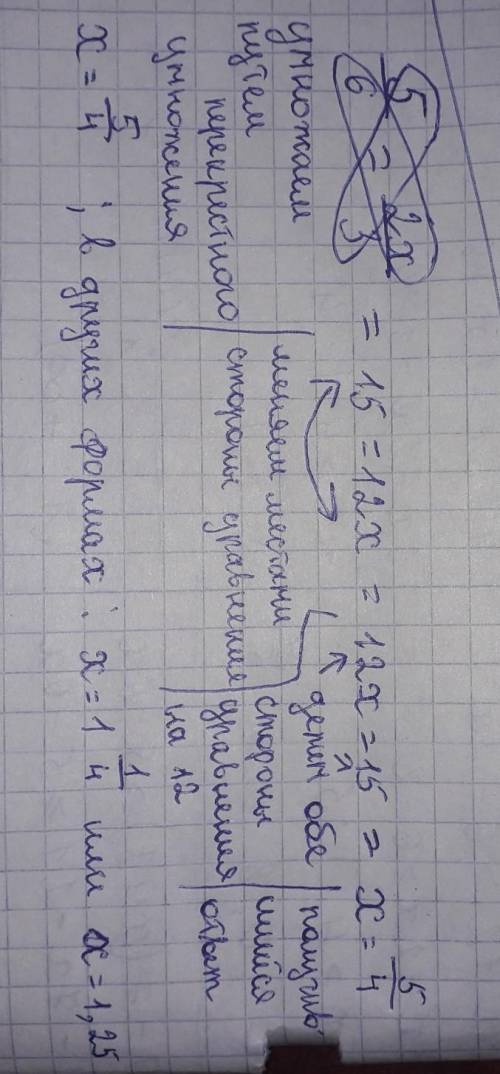 5/6 = 2x/3 = 15 = 12x = 12x = 15 = x = 5/4
умножаем
путем
перекрестного
умножения
меняем местами
стороны уравнения
делим обе
стороны
уравнения
на 12
получив
шийся
ответ
x = 5/4 ; в других формах : x = 1 1/4 или x = 1,25